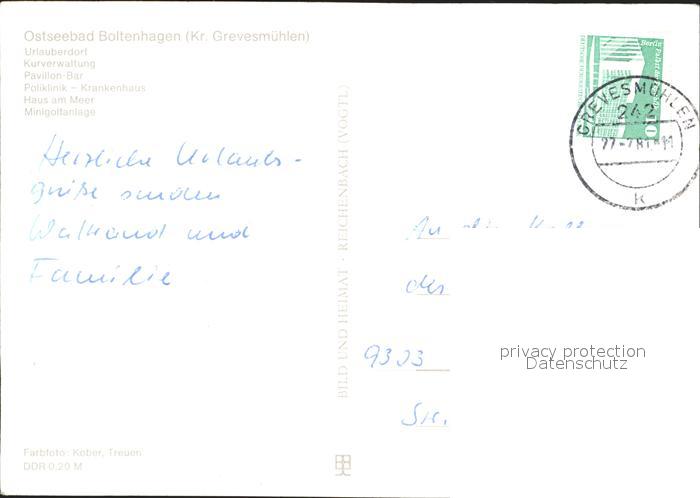 Ostseebad Boltenhagen (Kr. Grevesmühlen)
Urlauberdorf
Kurverwaltung
Pavillon-Bar
Poliklinik – Krankenhaus
Haus am Meer
Minigolfanlage
Herzliche Urlaubs-
grüße senden
und
Familie
BILD UND HEIMAT · REICHENBACH (VOGTL)
GREVESMÜHLEN
242
K
10
An die
der
9303
privacy protection
Datenschutz
Farbfoto: Kober, Treuen
DDR 0,20 M